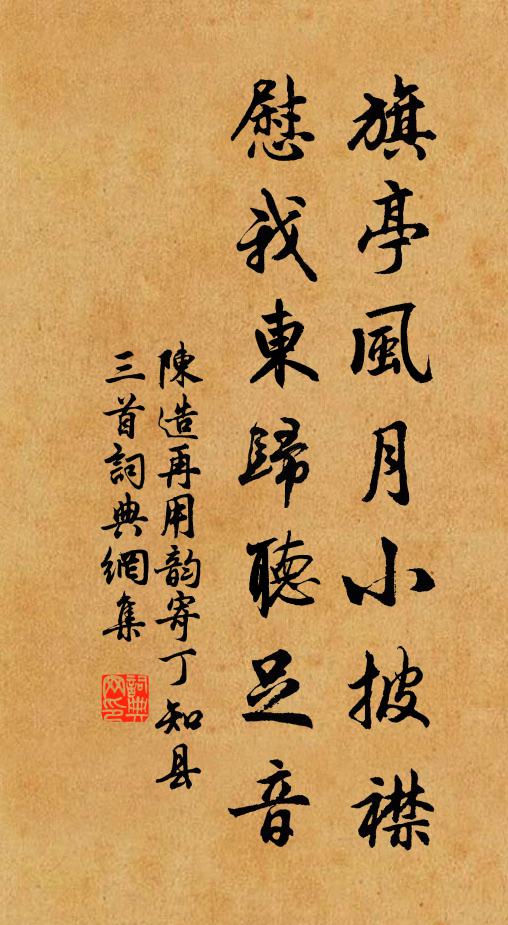 旗亭風月小披襟
慰我東歸聽足音
陳造再用韵寄丁知县
三首詞典網集
詞典网印